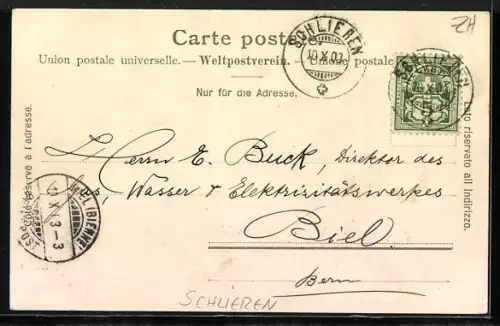 ZH
Carte posta
SCHLIEREN
10.X.03
Union postale universelle. — Weltpostverein. — Unione postale
SCHLIEREN
Nur für die Adresse.
Côté réservé à l'adresse.
Lato riservato all indirizzo.
Herrn E. Buck, Direktor des
Gas, Wasser & Elektrizitätswerkes
Biel.
Bern
BIEL (BIENNE)
10.X.03-3
SCHLIEREN